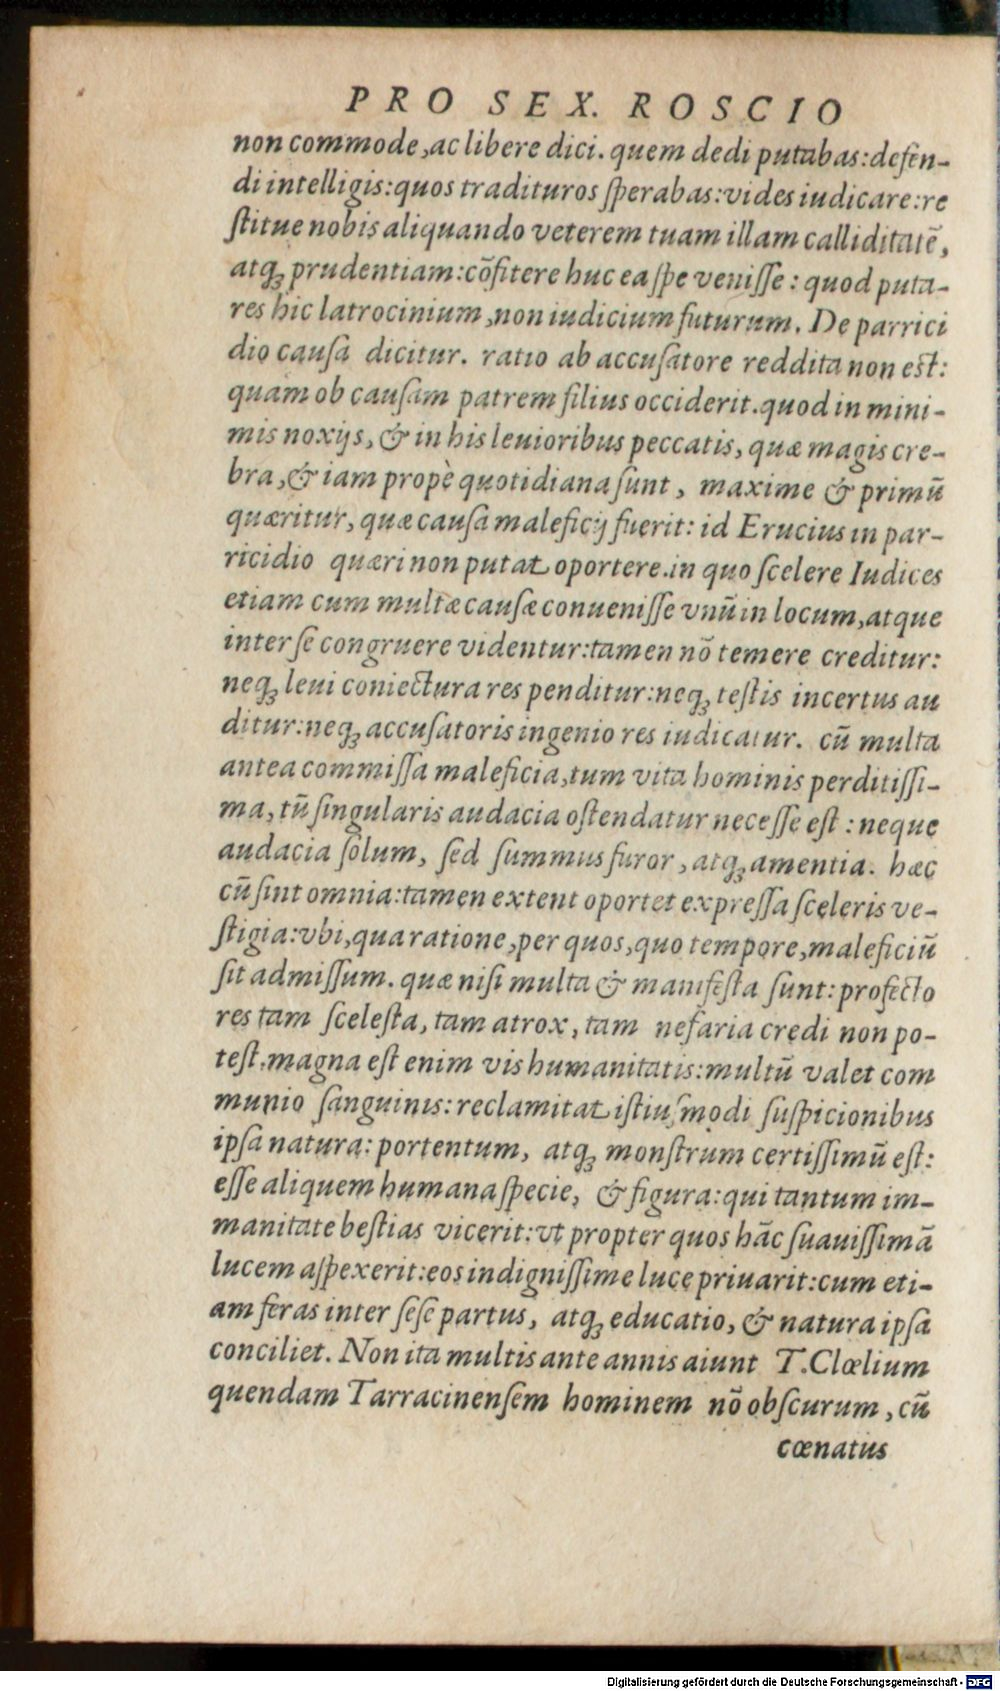 PRO SEX. ROSCIO
non commode, ac libere dici. quem dedi putabas: defen-
di intelligis: quos tradituros ſperabas: vides iudicare: re
ſtitue nobis aliquando veterem tuam illam calliditatē,
atq; prudentiam: cōfitere huc ea ſpe veniſſe: quod puta-
res hic latrocinium, non iudicium futurum. De parrici
dio cauſa dicitur. ratio ab accuſatore reddita non est:
quam ob cauſam patrem filius occiderit. quod in mini-
mis noxijs, & in his leuioribus peccatis, quæ magis cre-
bra, & iam propè quotidiana ſunt, maxime & primū
quæritur, quæ cauſa maleficij fuerit: id Erucius in par-
ricidio quæri non putat oportere. in quo ſcelere Iudices
etiam cum multæ cauſæ conueniſſe vnū in locum, atque
inter ſe congruere videntur: tamen nō temere creditur:
neq; leui coniectura res penditur: neq; teſtis incertus au
ditur: neq; accuſatoris ingenio res iudicatur. cū multa
antea commiſſa maleficia, tum vita hominis perditiſſi-
ma, tū ſingularis audacia oſtendatur neceſſe eſt: neque
audacia ſolum, ſed ſummus furor, atq; amentia. hæc
cū ſint omnia: tamen extent oportet expreſſa ſceleris ve-
ſtigia: vbi, qua ratione, per quos, quo tempore, maleficiū
ſit admiſſum. quæ niſi multa & manifeſta ſunt: profecto
res tam ſceleſta, tam atrox, tam nefaria credi non po-
teſt. magna eſt enim vis humanitatis: multū valet com
munio ſanguinis: reclamitat iſtiuſmodi ſuſpicionibus
ipſa natura: portentum, atq; monſtrum certiſſimū eſt:
eſſe aliquem humana ſpecie, & figura: qui tantum im-
manitate beſtias vicerit: vt propter quos hāc ſuauiſſimā
lucem aſpexerit: eos indigniſſime luce priuarit: cum eti-
am feras inter ſeſe partus, atq; educatio, & natura ipſa
conciliet. Non ita multis ante annis aiunt T. Clœlium
quendam Tarracinenſem hominem nō obſcurum, cū
cœnatus
Digitalisierung gefördert durch die Deutsche Forschungsgemeinschaft - DFG